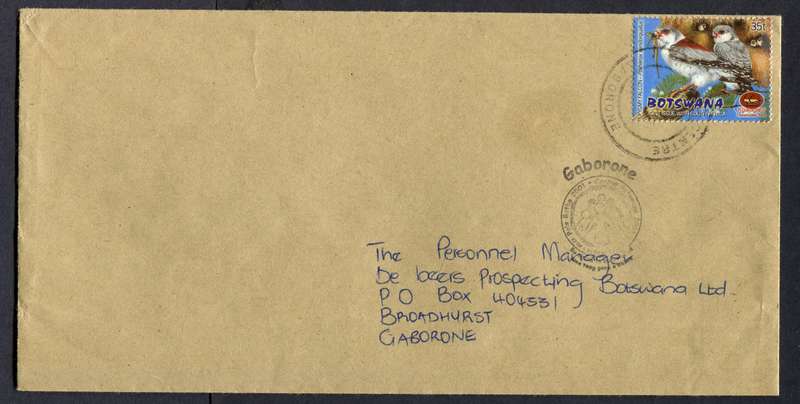 35t
BOTSWANA
GABORONE
CENTRE
Gaborone
2001
The Personnel Manager
De beers Prospecting Botswana Ltd.
P O Box 404531
BROADHURST
GABORONE